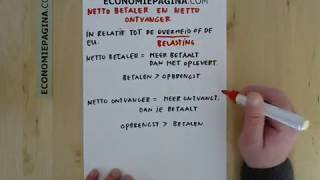 ECONOMIEPAGINA.COM
ECONOMIEPAGINA.COM
NETTO BETALER EN NETTO
ONTVANGER
IN RELATIE TOT DE OVERHEID OF DE
EU.
BELASTING
NETTO BETALER = MEER BETAALT
DAN HET OPLEVERT.
BETALEN > OPBRENGST
NETTO ONTVANGER = MEER ONTVANGT,
DAN JE BETAALT
OPBRENGST > BETALEN